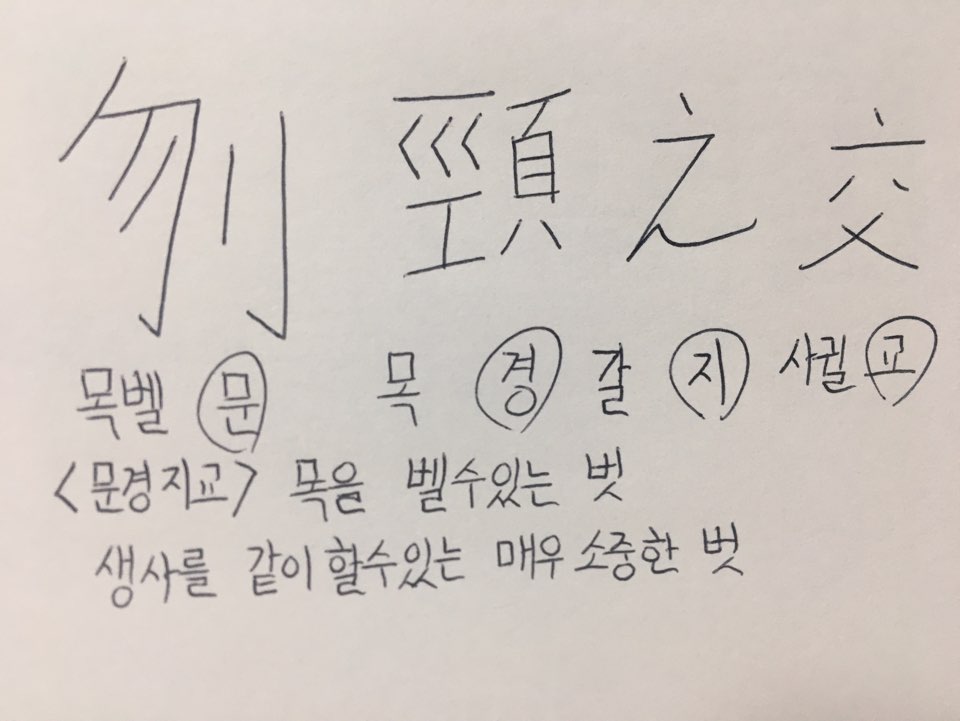 刎 頸 之 交
목벨 문 목 경 갈 지 사귈 교
<문경지교> 목을 벨수있는 벗
생사를 같이 할수있는 매우 소중한 벗